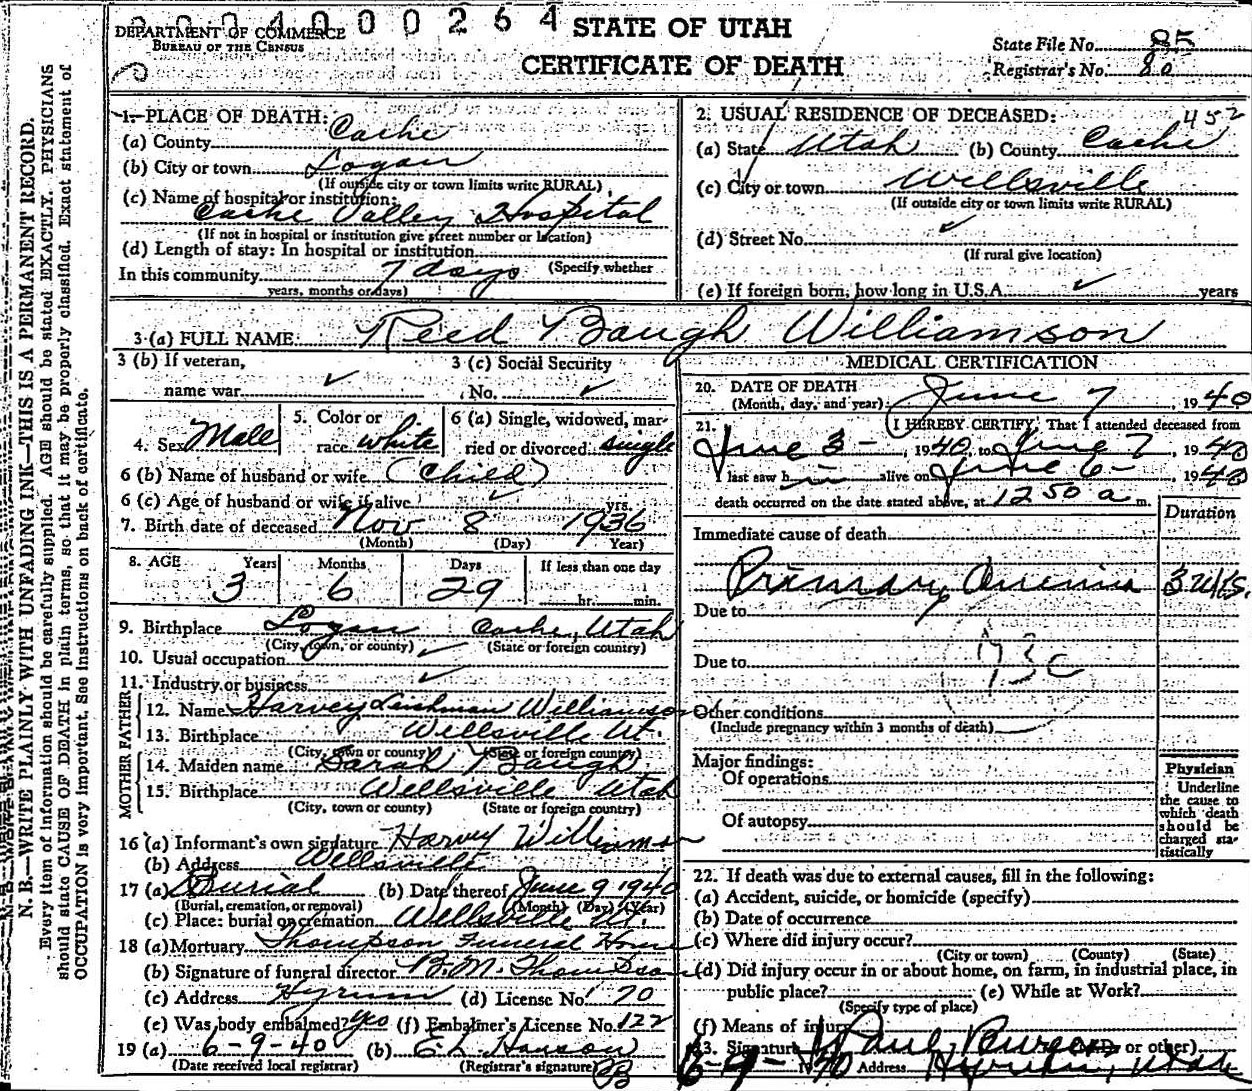 0004000264
STATE OF UTAH
CERTIFICATE OF DEATH
DEPARTMENT OF COMMERCE
BUREAU OF THE CENSUS
State File No. 85
Registrar's No. 80
N. B.—WRITE PLAINLY WITH UNFADING INK—THIS IS A PERMANENT RECORD.
Every item of information should be carefully supplied. AGE should be stated EXACTLY. PHYSICIANS
should state CAUSE OF DEATH in plain terms, so that it may be properly classified. Exact statement of
OCCUPATION is very important. See instructions on back of certificate.
1.—PLACE OF DEATH:
(a) County Cache
(b) City or town Logan
(If outside city or town limits write RURAL)
(c) Name of hospital or institution:
Cache Valley Hospital
(If not in hospital or institution give street number or location)
(d) Length of stay: In hospital or institution
In this community 7 days (Specify whether
years, months or days)
2. USUAL RESIDENCE OF DECEASED: 452
(a) State Utah (b) County Cache
(c) City or town Wellsville
(If outside city or town limits write RURAL)
(d) Street No. ✓
(If rural give location)
(e) If foreign born, how long in U.S.A. ✓ years
3 (a) FULL NAME: Reed Baugh Williamson
3 (b) If veteran,
name war ✓
3 (c) Social Security
No. ✓
4. Sex Male
5. Color or
race white
6 (a) Single, widowed, mar-
ried or divorced single
6 (b) Name of husband or wife (Child)
6 (c) Age of husband or wife if alive ✓ yrs.
7. Birth date of deceased Nov 8 1936
(Month) (Day) Year)
8. AGE Years Months Days If less than one day
3 6 29 hr. min.
9. Birthplace Logan Cache, Utah
(City, town, or county) (State or foreign country)
10. Usual occupation ✓
11. Industry or business ✓
FATHER
12. Name Harvey Leishman Williamson
13. Birthplace Wellsville Ut.
(City, town or county) (State or foreign country)
MOTHER
14. Maiden name Sarah Baugh
15. Birthplace Wellsville Utah
(City, town or county) (State or foreign country)
16 (a) Informant's own signature Harvey Williamson
(b) Address Wellsville
17 (a) Burial (b) Date thereof June 9 1940
(Burial, cremation, or removal) (Month) (Day) (Year)
(c) Place: burial or cremation Wellsville Ut.
18 (a) Mortuary Thompson Funeral Home
(b) Signature of funeral director B. M. Thompson
(c) Address Hyrum (d) License No. 70
(e) Was body embalmed? yes (f) Embalmer's License No. 122
19 (a) 6-9-40 (b) E. L. Hanson
(Date received local registrar) (Registrar's signature)
MEDICAL CERTIFICATION
20. DATE OF DEATH
(Month, day, and year) June 7, 1940
21. I HEREBY CERTIFY, That I attended deceased from
June 3 -, 1940, to June 7, 1940
I last saw him alive on June 6 -, 1940
death occurred on the date stated above, at 12 50 a m.
Duration
Immediate cause of death
Primary Anemia 3 wks.
Due to
Due to
73c
Other conditions
(Include pregnancy within 3 months of death)
Major findings:
Of operations
Of autopsy
Physician
Underline
the cause to
which death
should be
charged sta-
tistically
22. If death was due to external causes, fill in the following:
(a) Accident, suicide, or homicide (specify)
(b) Date of occurrence
(c) Where did injury occur?
(City or town) (County) (State)
(d) Did injury occur in or about home, on farm, in industrial place, in
public place? (e) While at Work?
(Specify type of place)
(f) Means of injury
23. Signature Paul (MD or other)
6-9-1940 Address Hyrum, Utah